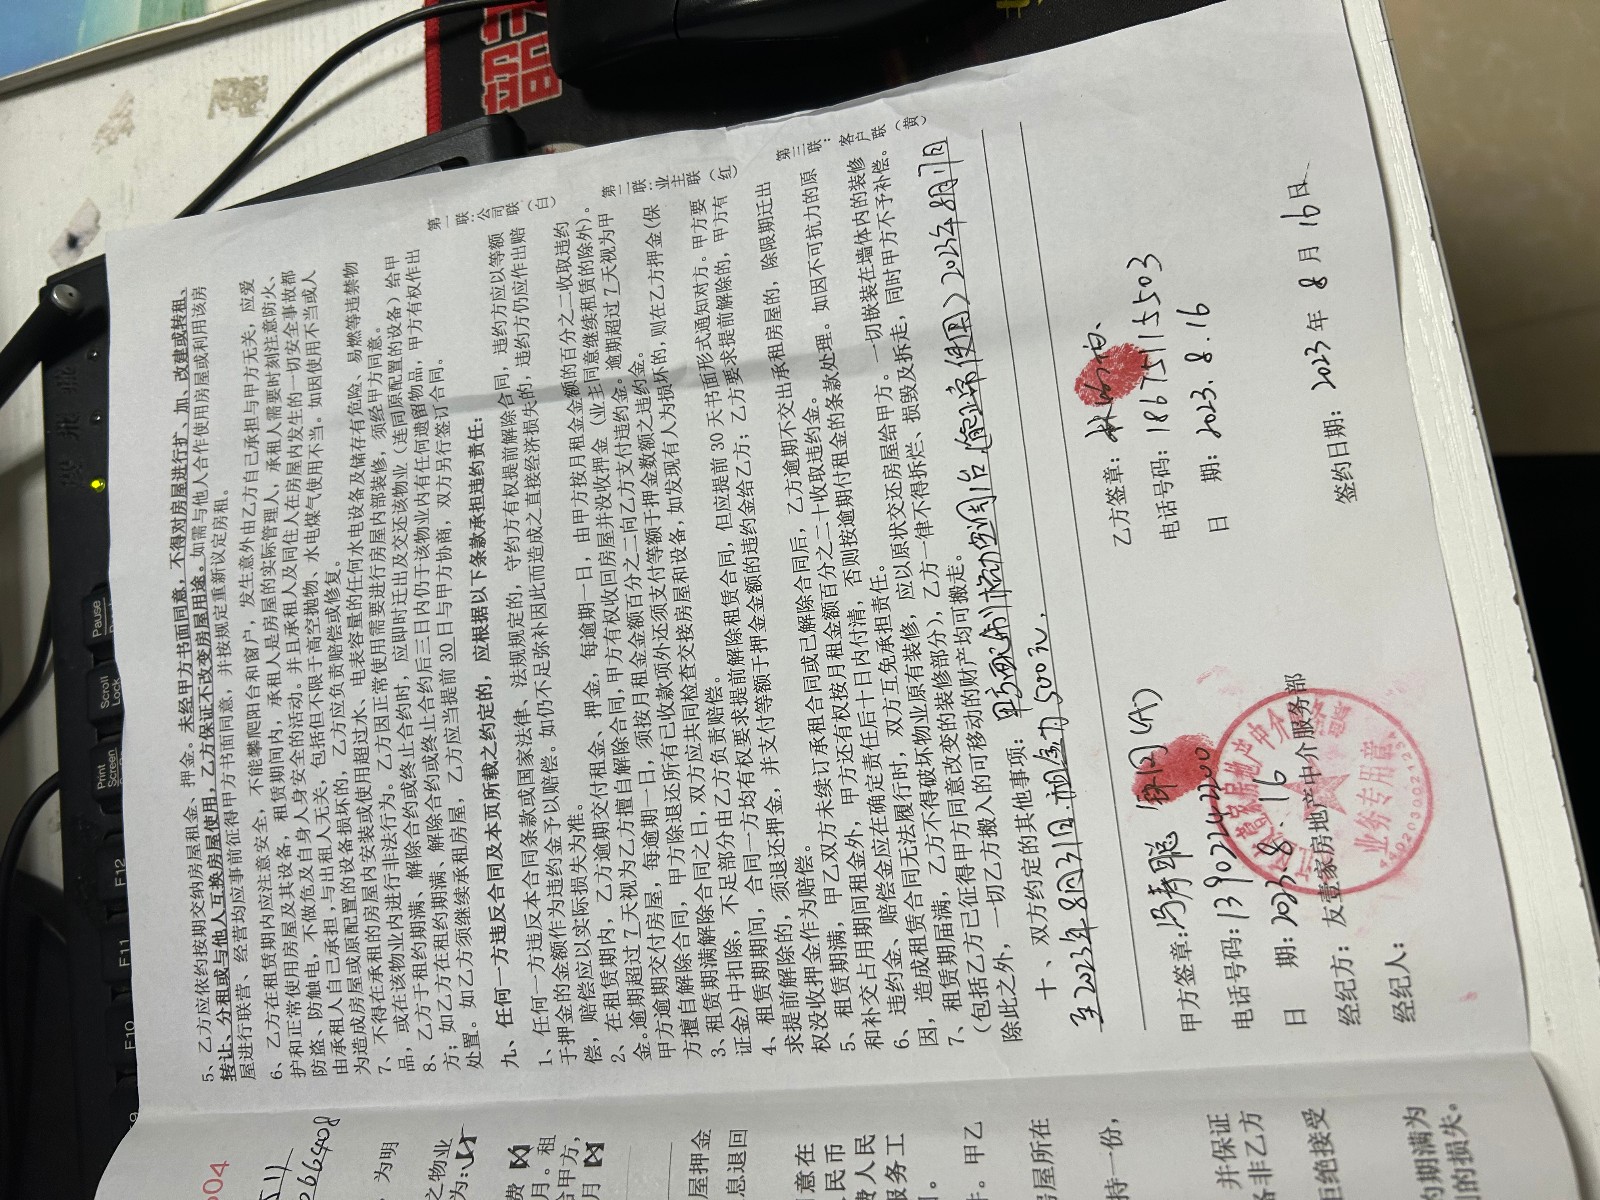 5、乙方应依约按期交纳房屋租金、押金。未经甲方书面同意，不得对房屋进行扩、加、改建或转租、
转让、分租或与他人互换房屋使用，乙方保证不改变房屋用途。如需与他人合作使用房屋或利用该房
屋进行联营、经营均应事前征得甲方书面同意，并按规定重新议定房租。
6、乙方在租赁期内应注意安全，不能攀爬阳台和窗户，发生意外由乙方自己承担与甲方无关，应爱
护和正常使用房屋及其设备，租赁期间内，承租人是房屋的实际管理人，承租人需要时刻注意防火、
防盗、防触电，不做危及自身人身安全的活动。并且承租人及同住人在房屋内发生的一切安全事故都
由承租人自己承担，与出租人无关，包括但不限于高空抛物、水电煤气使用不当。如因使用不当或人
为造成房屋或原配置的设备损坏的，乙方应负责赔偿或修复。
7、不得在承租的房屋内安装或使用超过水、电表容量的任何水电设备及储存有危险、易燃等违禁物
品，或在该物业内进行非法行为。乙方因正常使用需要进行房屋内部装修，须经甲方同意。
8、乙方于租约期满、解除合约或终止合约时，应即时迁出及交还该物业（连同原配置的设备）给甲
方；如乙方在租约期满、解除合约或终止合约后三日内仍于该物业内有任何遗留物品，甲方有权作出
处置。如乙方须继续承租房屋，乙方应当提前 30 日与甲方协商，双方另行签订合同。
九、任何一方违反合同及本页所载之约定的，应根据以下条款承担违约责任：
1、任何一方违反本合同条款或国家法律、法规规定的，守约方有权提前解除合同，违约方应以等额
于押金的金额作为违约金予以赔偿。如仍不足弥补因此而造成之直接经济损失的，违约方仍应作出赔
偿，赔偿应以实际损失为准。
2、在租赁期内，乙方逾期交付租金、押金，每逾期一日，由甲方按月租金金额的百分之二收取违约
金。逾期超过 7 天视为乙方擅自解除合同，甲方有权收回房屋并没收押金（业主同意继续租赁的除外）。
甲方逾期交付房屋，每逾期一日，须按月租金金额百分之二向乙方支付违约金。逾期超过 7 天视为甲
方擅自解除合同，甲方除退还所有已收款项外还须支付等额于押金数额之违约金。
3、租赁期满解除合同之日，双方应共同检查交接房屋和设备，如发现有人为损坏的，则在乙方押金（保
证金）中扣除，不足部分由乙方负责赔偿。
4、租赁期期间，合同一方均有权要求提前解除租赁合同，但应提前 30 天书面形式通知对方。甲方要
求提前解除的，须退还押金，并支付等额于押金金额的违约金给乙方；乙方要求提前解除的，甲方有
权没收押金作为赔偿。
5、租赁期满，甲乙双方未续订承租合同或已解除合同后，乙方逾期不交出承租房屋的，除限期迁出
和补交占用期间租金外，甲方还有权按月租金额百分之二十收取违约金。
6、违约金、赔偿金应在确定责任后十日内付清，否则按逾期付租金的条款处理。如因不可抗力的原
因，造成租赁合同无法履行时，双方互免承担责任。
7、租赁期届满，乙方不得破坏物业原有装修，应以原状交还房屋给甲方。一切嵌装在墙体内的装修
（包括乙方已征得甲方同意改变的装修部分），乙方一律不得拆烂、损毁及拆走，同时甲方不予补偿。
除此之外，一切乙方搬入的可移动的财产均可搬走。
十、双方约定的其他事项：
至2023年8月31日.租金为500元.
第一联:公司联（白）
第二联:业主联（红）
第三联:客户联（黄）
甲方签章：
电话号码：13902242400
日 期：2023.8.16
经纪方：友壹家房地产中介服务部
经纪人：
乙方签章：
电话号码：18675115503
日 期：2023.8.16
签约日期：2023 年 8 月 16 日
业务专用章
Print Screen
Scroll Lock
Pause
F10
F11
F12
，为明
之物业
屋押金
息退回
意在
民币
费人民
服务工
。甲乙
房屋所在
持一份，
并保证
各非乙方
拒绝接受
约期满为
的损失。